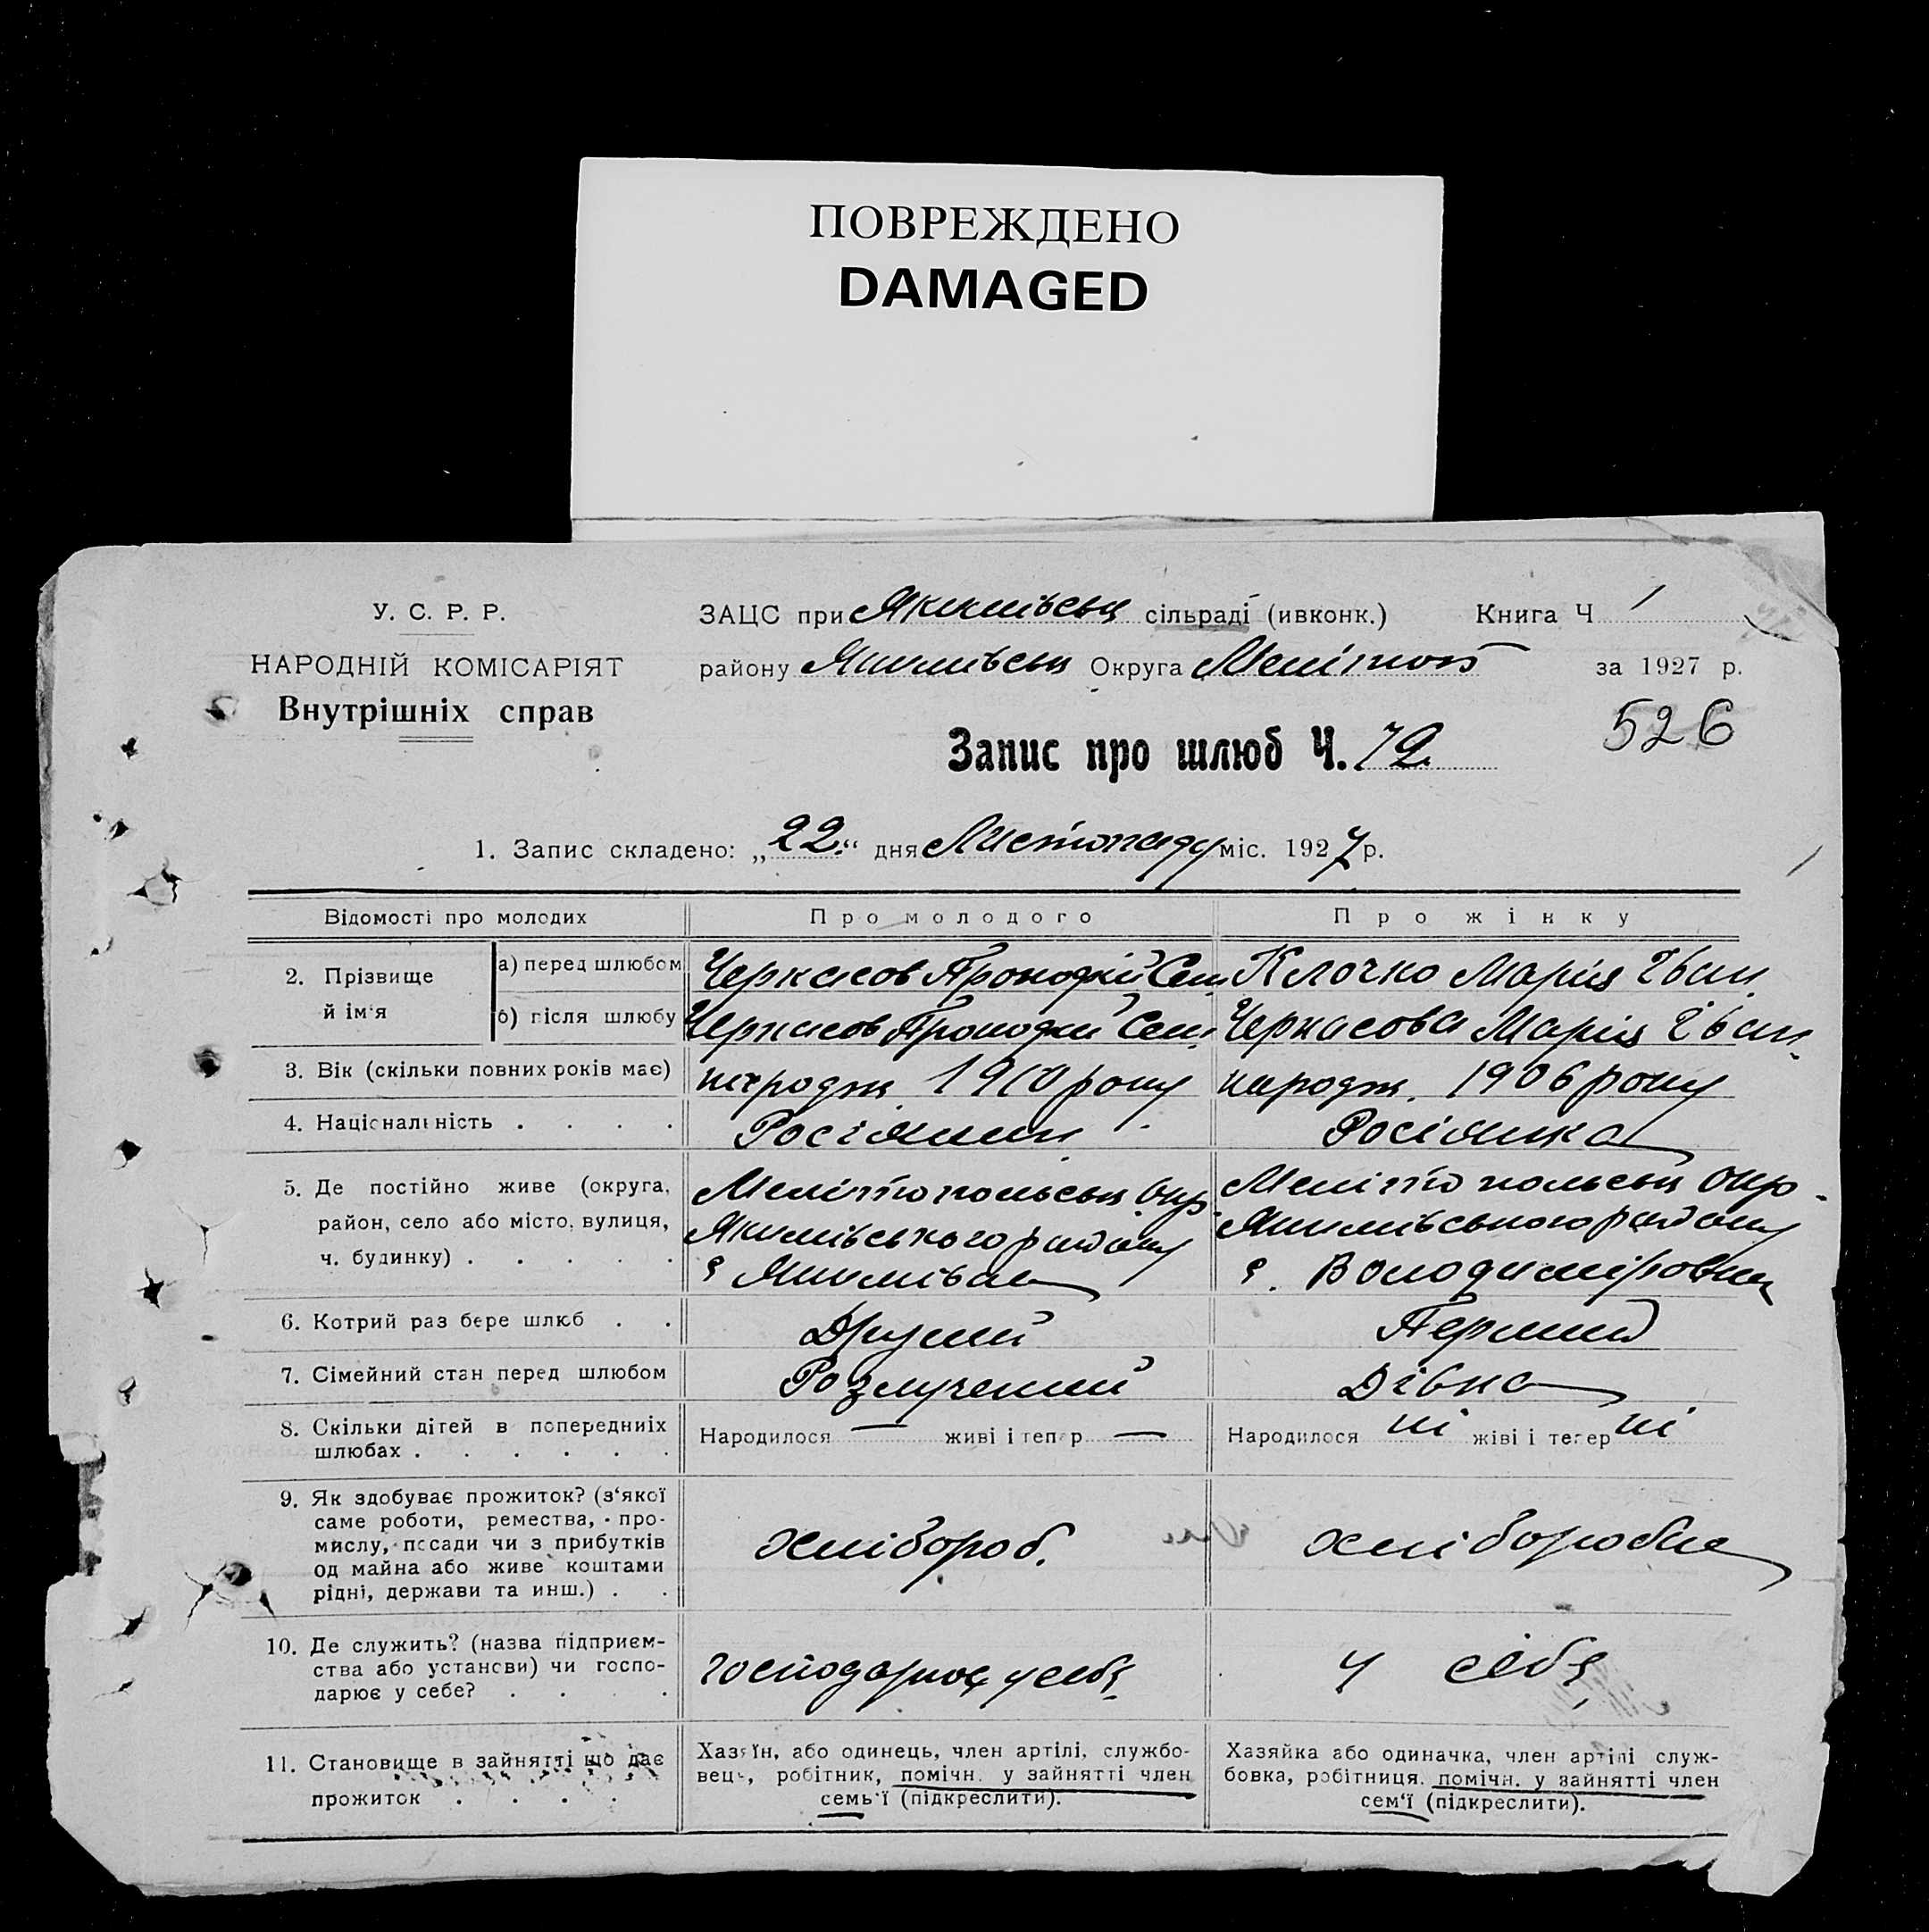 ПОВРЕЖДЕНО
DAMAGED
У. С. Р. Р.
НАРОДНІЙ КОМІСАРІЯТ
Внутрішніх справ
ЗАЦС при Якимівськ сільраді (ивконк.) Книга Ч 1
району Якимівськ Округа Меліт за 1927 р.
526
Запис про шлюб Ч. 72
1. Запис складено: „22“ дня Листопаду міс. 1927 р.
Відомості про молодих
Про молодого
Про жінку
2. Прізвище й ім'я
а) перед шлюбом
Черкасов Прокофій Сем
Клочко Марія Іван.
б) після шлюбу
Черкасов Прокофій Сем.
Черкасова Марія Іван.
3. Вік (скільки повних років має)
народж. 1910 року
народж. 1906 року
4. Національність . . . .
Росіянин
Росіянка
5. Де постійно живе (округа,
район, село або місто, вулиця,
ч. будинку) . . . . .
Мелітопольськ Окр.
Якимівського району
с Якимівка
Мелітопольськ Окр.
Якимівського району
с. Володимірівка
6. Котрий раз бере шлюб . .
Другий
Перший
7. Сімейний стан перед шлюбом
Розлучений
Дівка
8. Скільки дітей в попередніх
шлюбах . . . . . .
Народилося — живі і тепер —
Народилося ні жіві і тепер ні
9. Як здобуває прожиток? (з'якої
саме роботи, ремества, про-
мислу, посади чи з прибутків
од майна або живе коштами
рідні, держави та инш.) . .
хлібороб.
хліборобка
10. Де служить? (назва підприєм-
ства або установи) чи госпо-
дарює у себе? . . . .
господарює у себе
у себе
11. Становище в зайнятті що дає
прожиток . . . .
Хазяїн, або одинець, член артілі, службо-
вець, робітник, помічн. у зайнятті член
семь'ї (підкреслити).
Хазяйка або одиначка, член артілі служ-
бовка, робітниця. помічн. у зайнятті член
сем'ї (підкреслити).